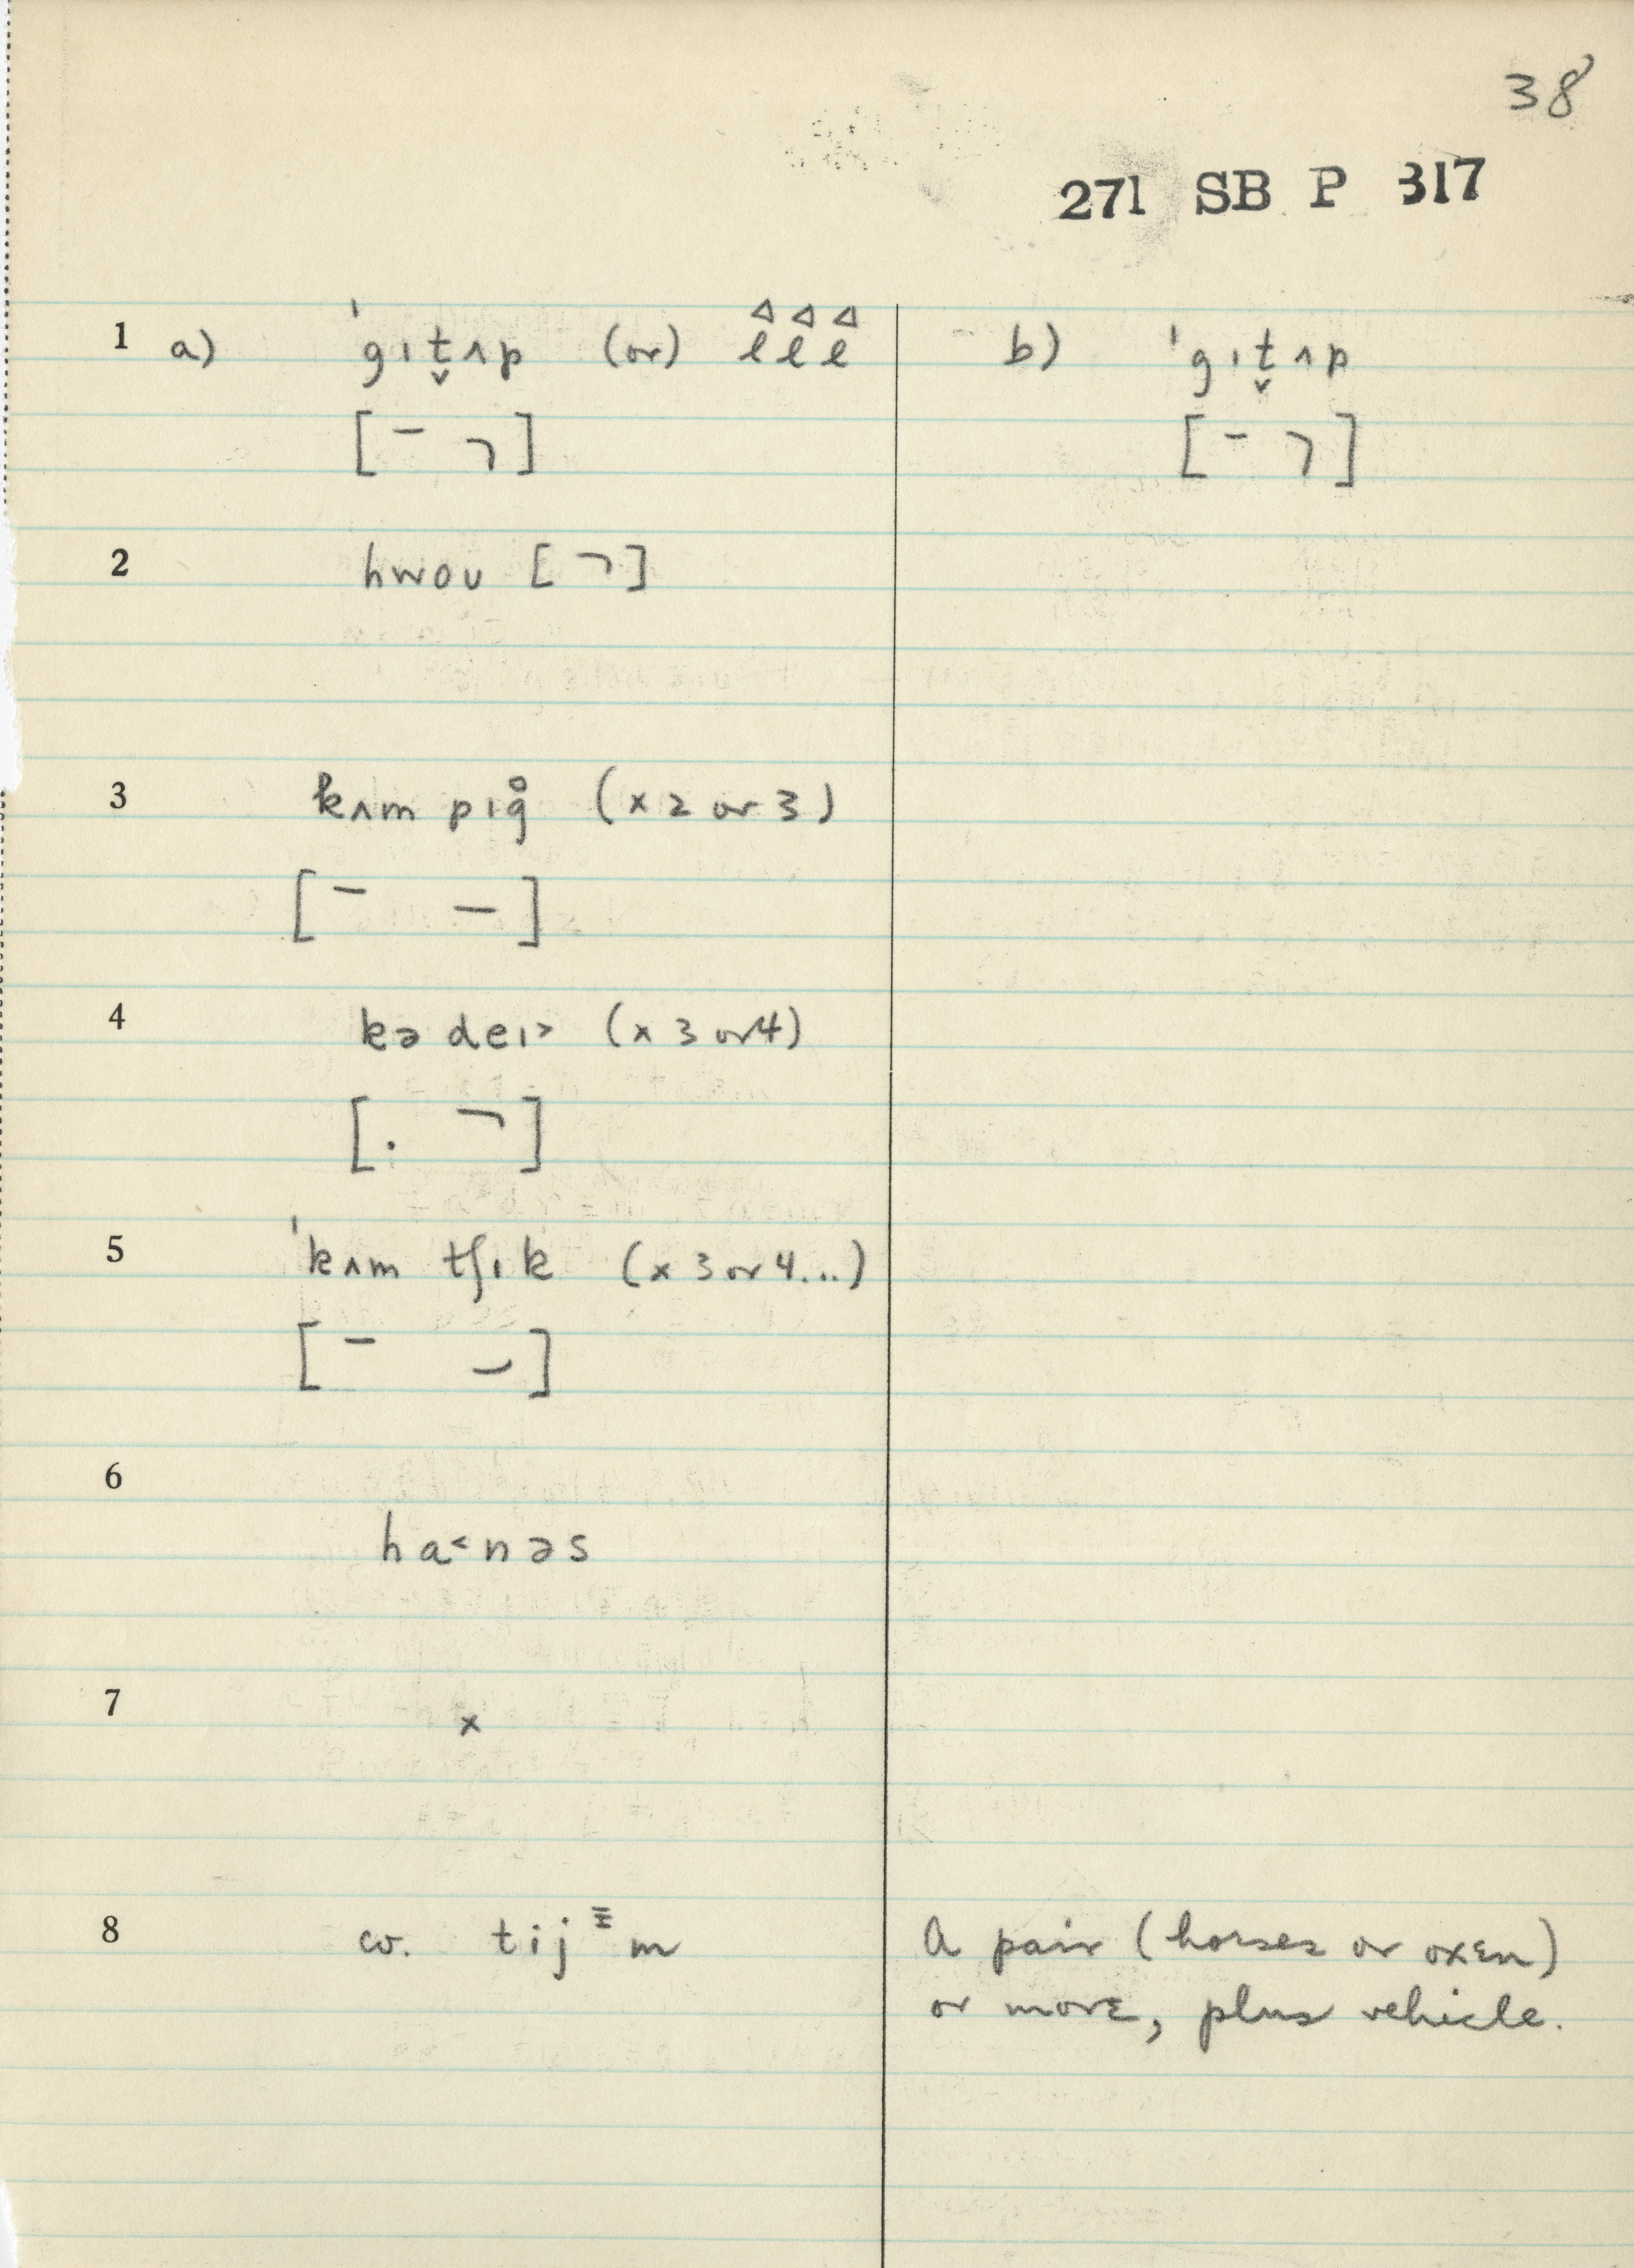 38
271 SB P 317
1 a) ˈgɪt̬ʌp (or) l l l b) ˈgɪt̬ʌp
[ ¯ ¬ ] [ - ¬ ]
2 hwoᴜ [ ¬ ]
3 kʌm pɪg̊ (x 2 or 3)
[ ¯ – ]
4 kə deɪ> (x 3 or 4)
[ . ¬ ]
5 ˈkʌm tʃɪk (x 3 or 4...)
[ ¯ ⌣ ]
6
ha˂nəs
7 x
8 cv. tij m A pair (horses or oxen)
or more, plus vehicle.